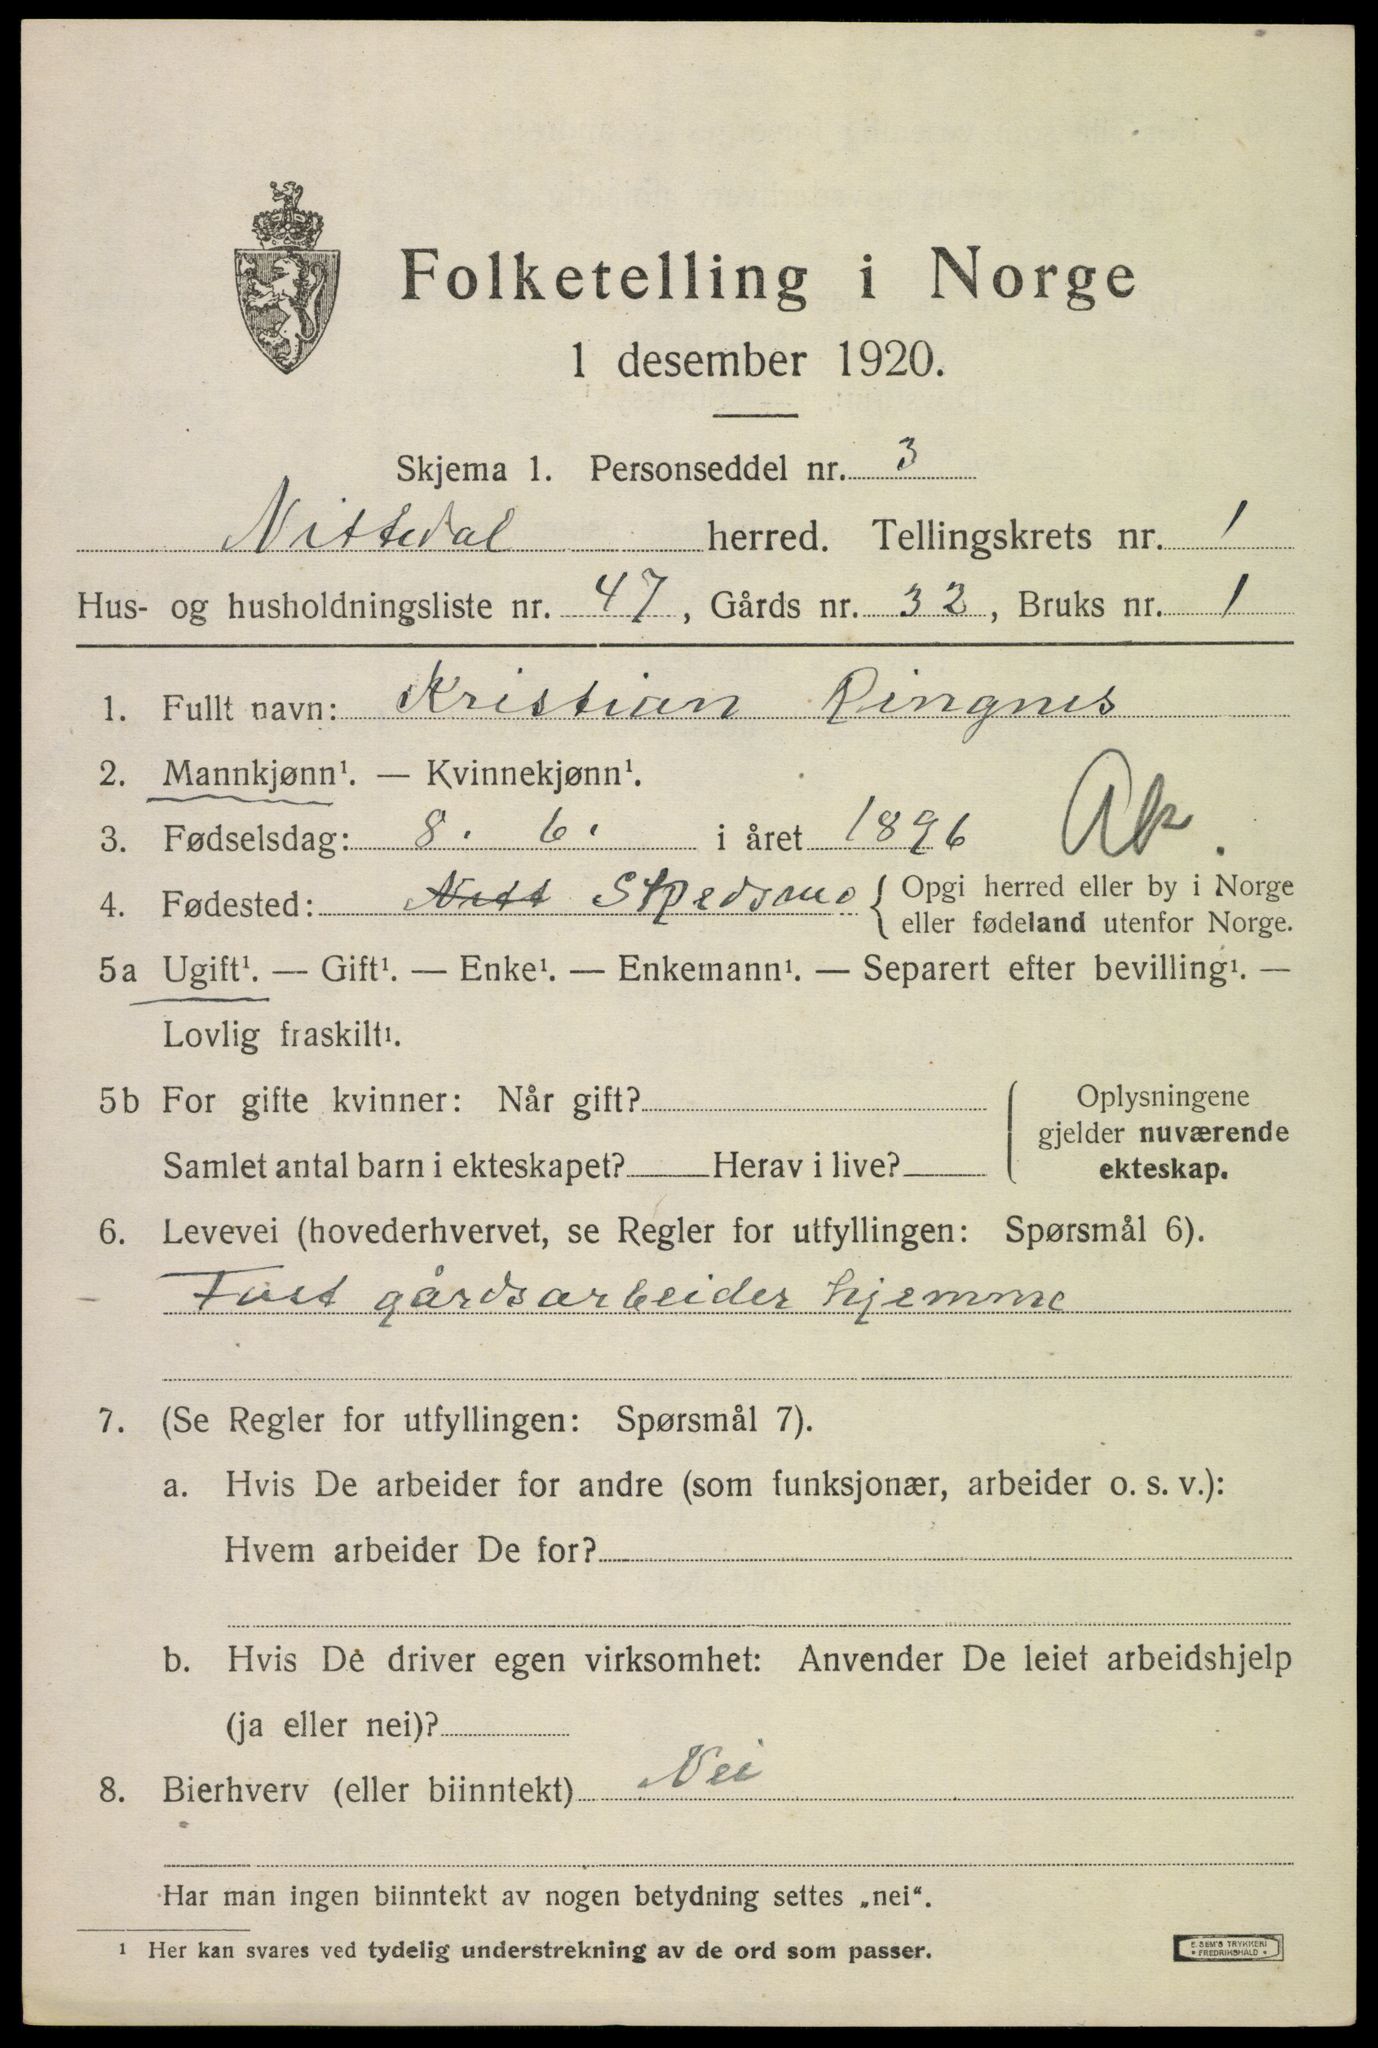 Folketelling i Norge
1 desember 1920.
Skjema 1. Personseddel nr. 3
Nittedal herred. Tellingskrets nr. 1
Hus- og husholdningsliste nr. 47, Gårds nr. 32, Bruks nr. 1
1. Fullt navn: Kristian Ringnes
2. Mannkjønn¹. — Kvinnekjønn¹.
3. Fødselsdag: 8. 6. i året 1896 Ak.
4. Fødested: Nitt Skedsmo { Opgi herred eller by i Norge
eller fødeland utenfor Norge.
5a Ugift¹. — Gift¹. — Enke¹. — Enkemann¹. — Separert efter bevilling¹. —
Lovlig fraskilt¹.
5b For gifte kvinner: Når gift?
Samlet antal barn i ekteskapet? Herav i live?
Oplysningene
gjelder nuværende
ekteskap.
6. Levevei (hovederhvervet, se Regler for utfyllingen: Spørsmål 6).
Fast gårdsarbeider hjemme
7. (Se Regler for utfyllingen: Spørsmål 7).
a. Hvis De arbeider for andre (som funksjonær, arbeider o. s. v.):
Hvem arbeider De for?
b. Hvis De driver egen virksomhet: Anvender De leiet arbeidshjelp
(ja eller nei)?
8. Bierhverv (eller biinntekt) Nei
Har man ingen biinntekt av nogen betydning settes „nei“.
¹ Her kan svares ved tydelig understrekning av de ord som passer.
E. SEM'S TRYKKERI
• FREDRIKSHALD •